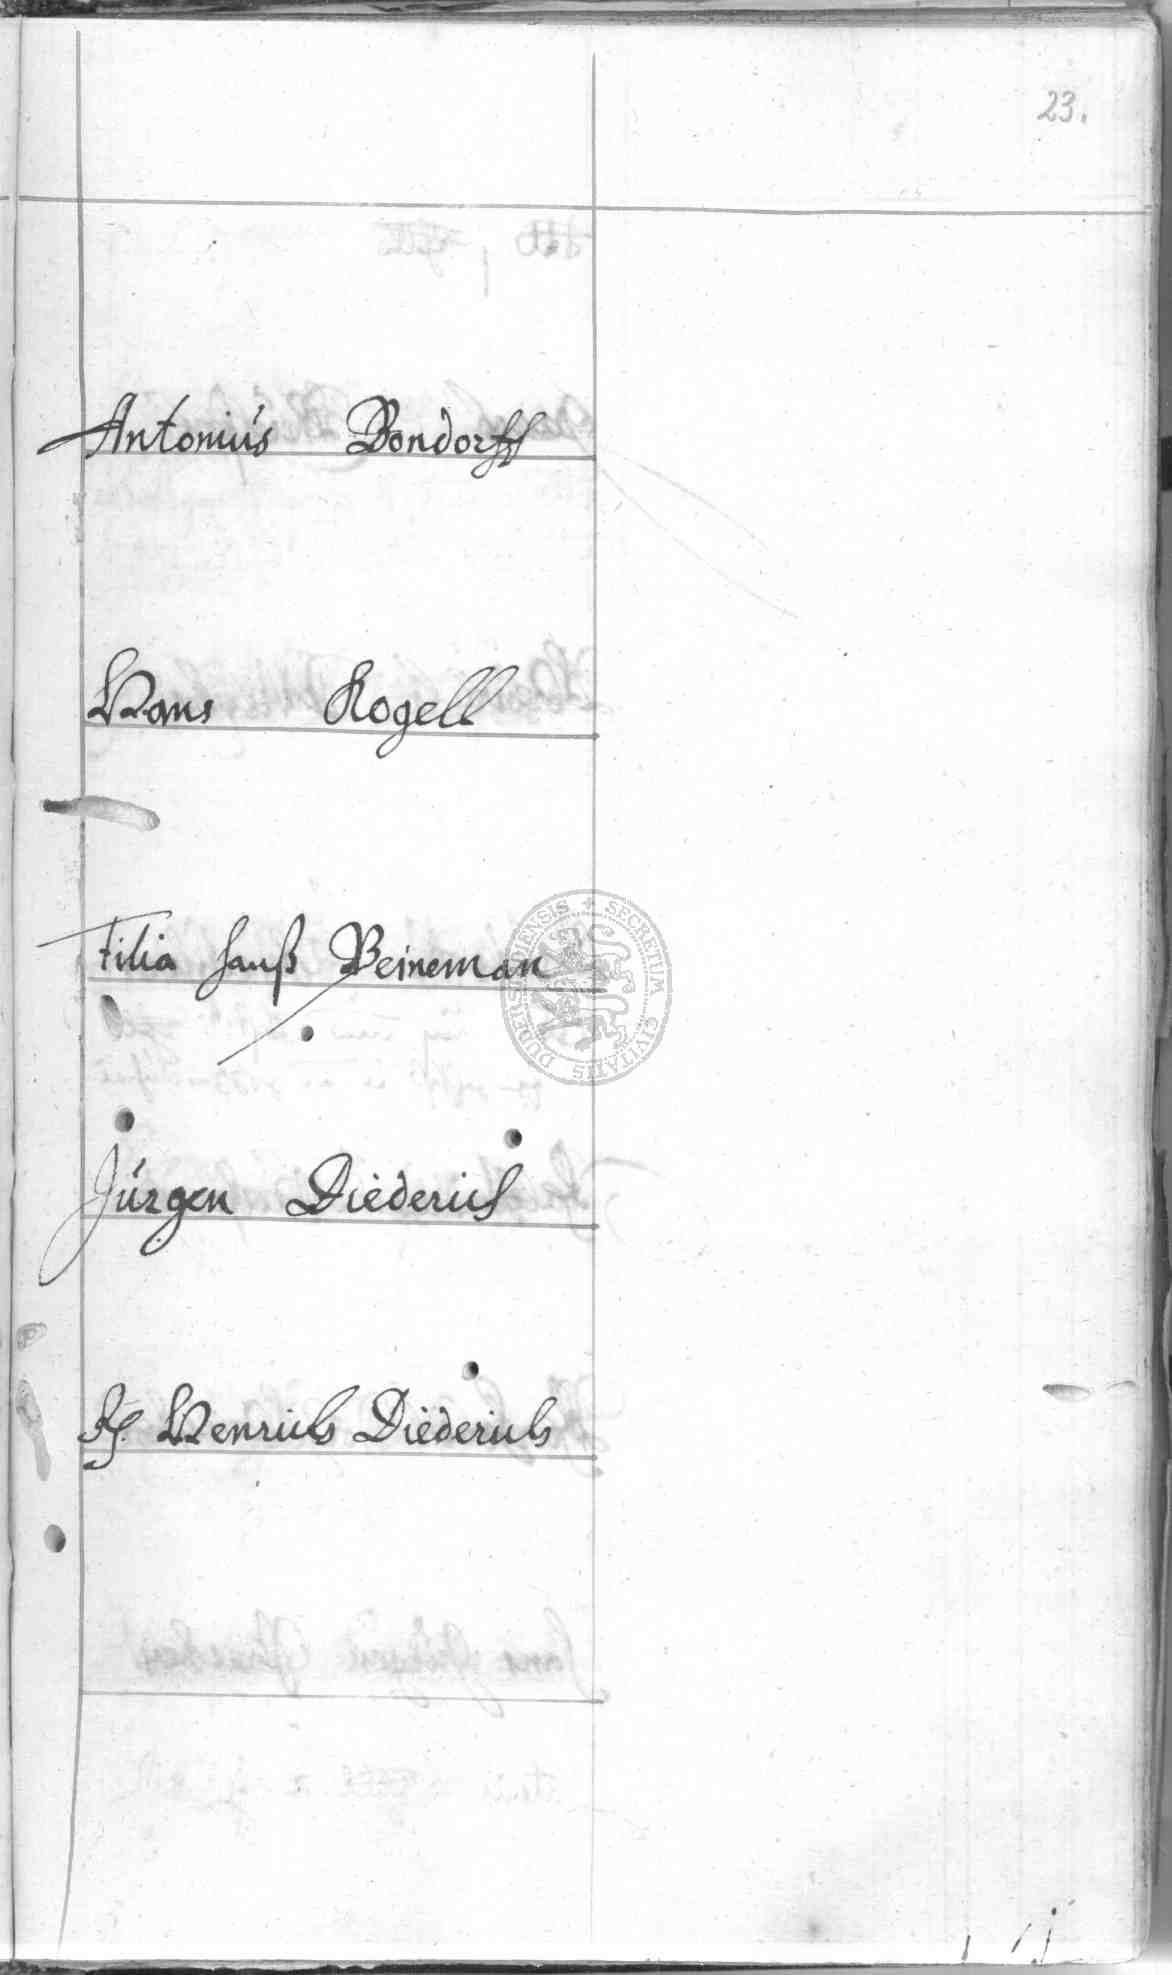 23.
Antonius Bondorff
Hans Kogell
Filia Hanß Beineman
SECRETUM CIVITATIS DUDERSTADIENSIS
Jürgen Diederich
H. Henrich Diederich